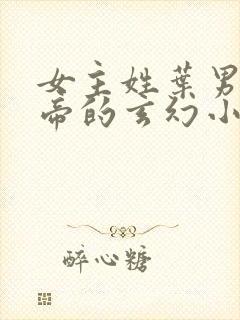 女主姓葉男
帝的玄幻小
醉心糖